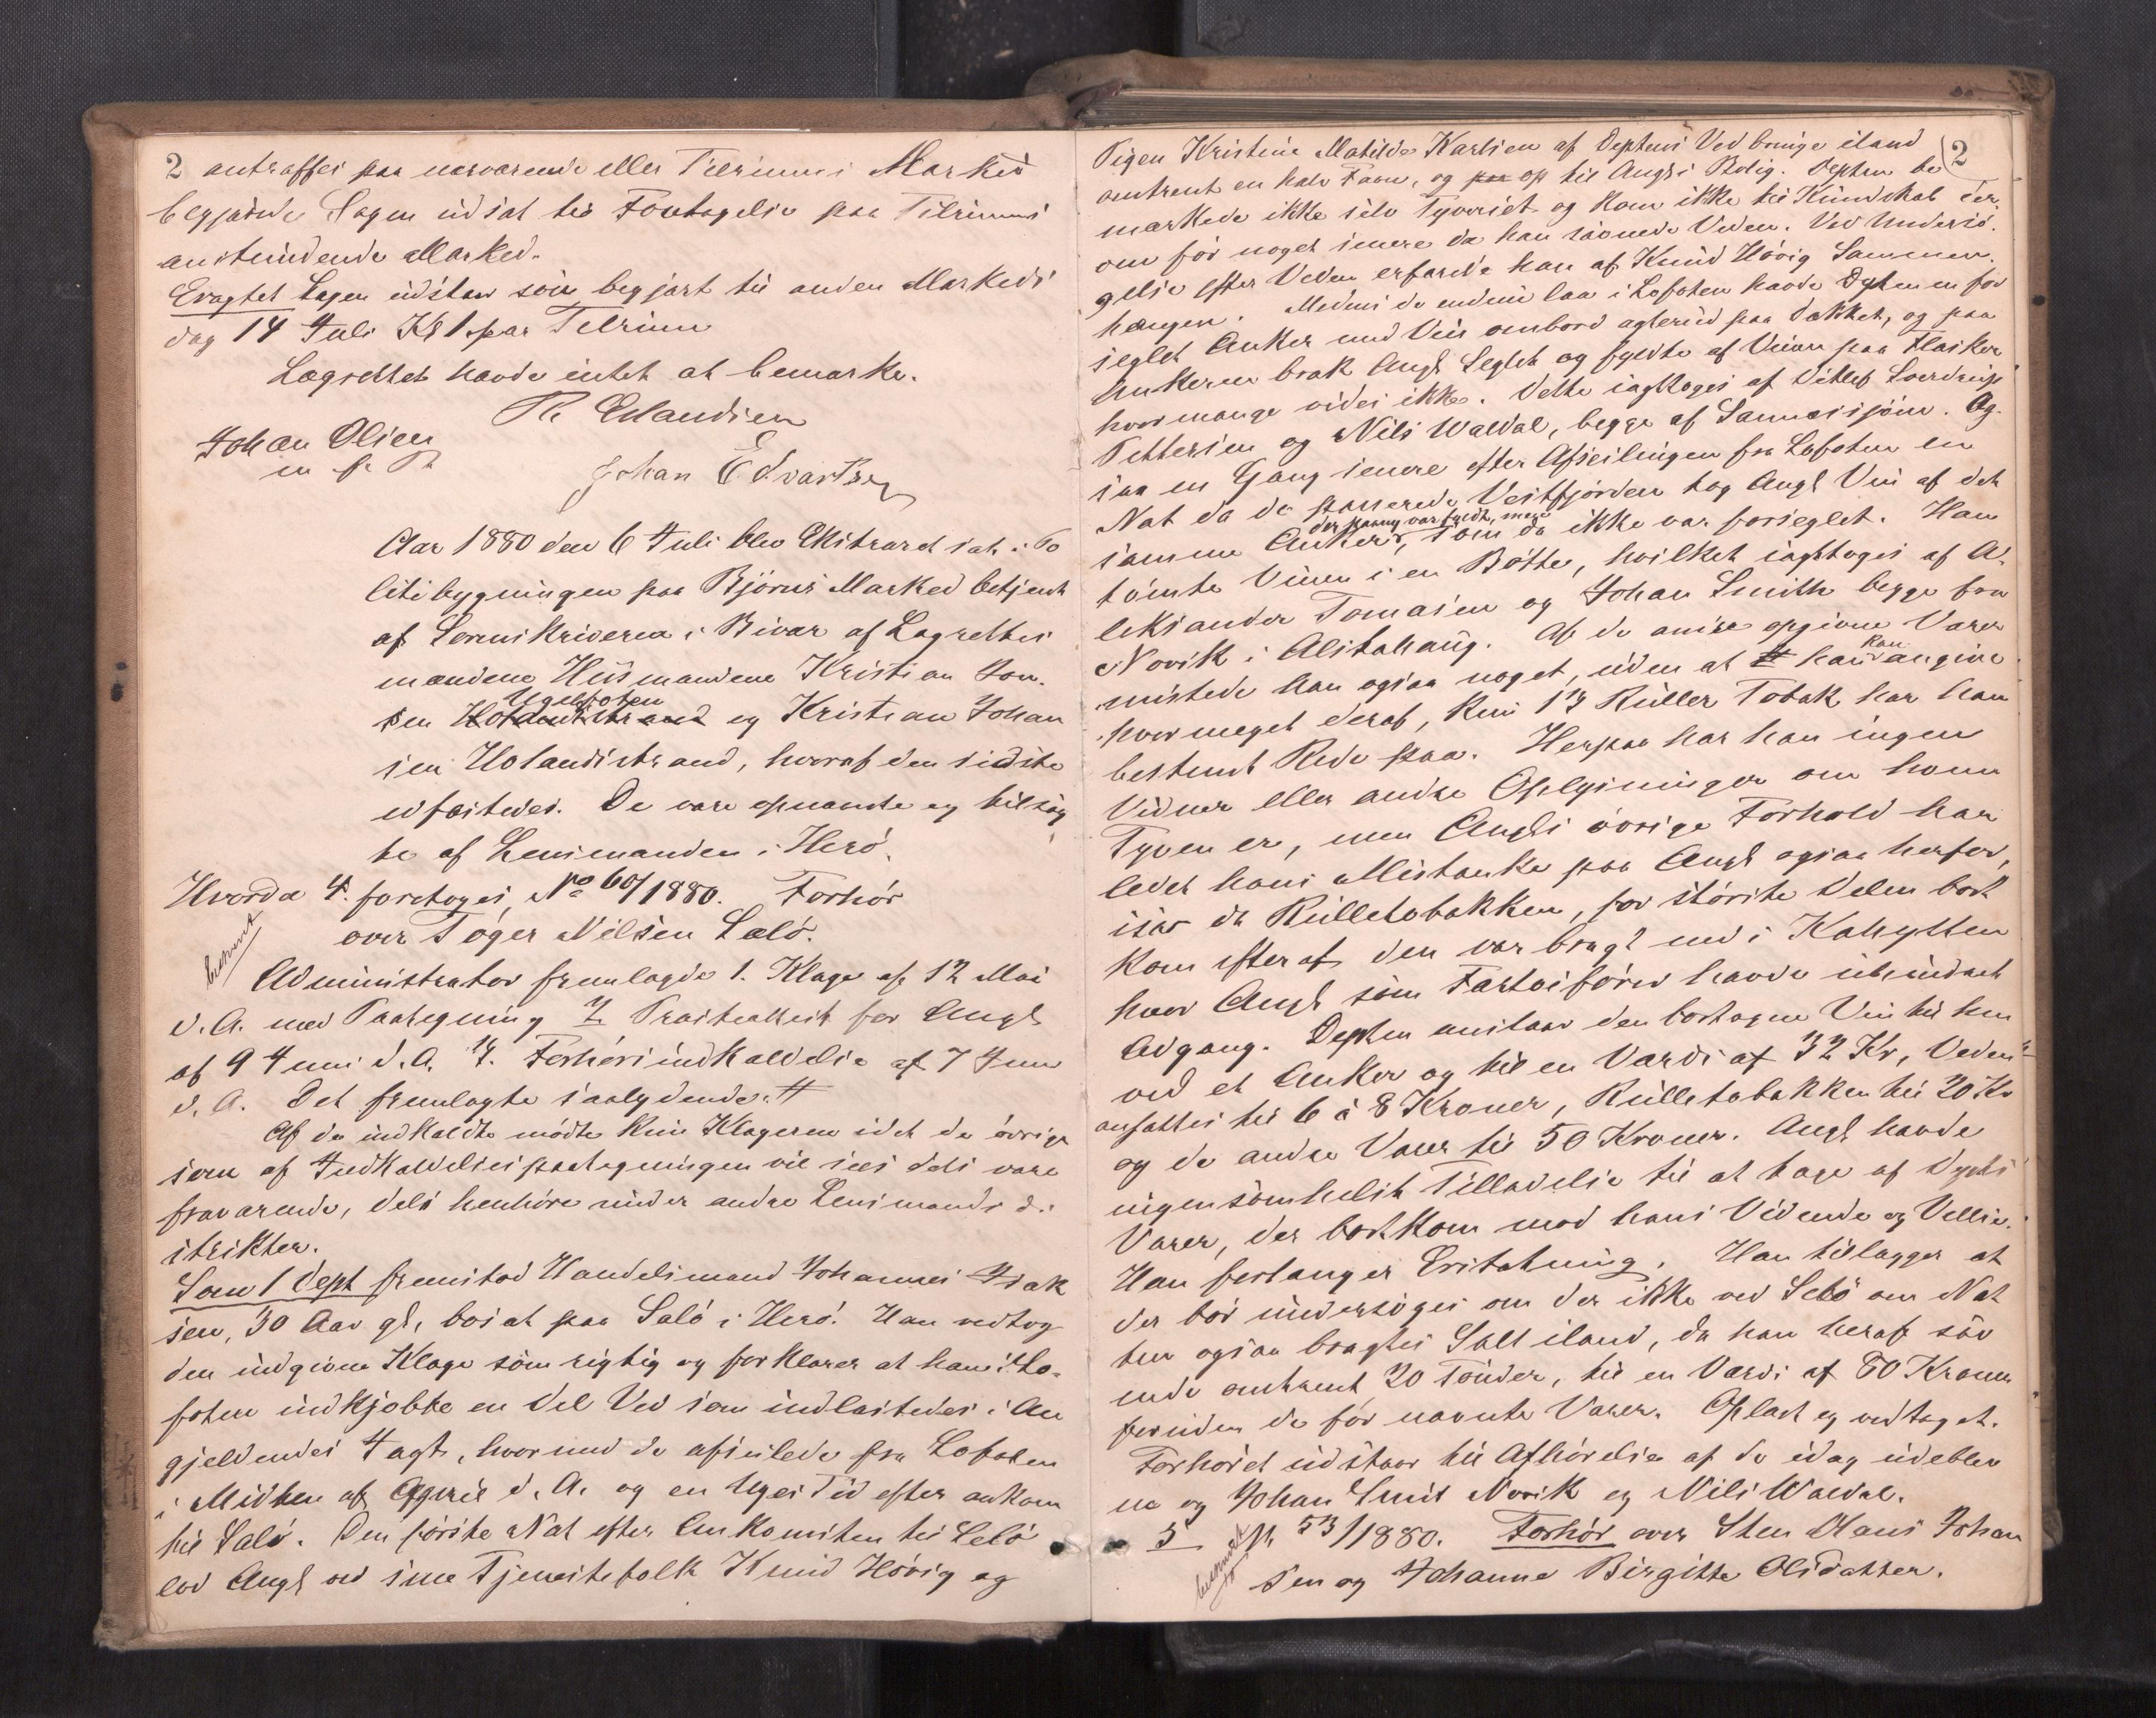 2 antræffes paa nærværende eller Tilrimms Marked
begjærede Sagen udsat til Foretagelse paa Tilrimms
anstundende Marked.
Eragtet Sagen udstaar som begjært til anden Markeds
dag 14 Juli Kl 1 paa Tilrimm
Lagrettet havde intet at bemærke.
Th Erlandsen
Johan Olsen
m f P
Johan Edvartsen
Aar 1880 den 6 Juli blev Ekstraret sat i Po
litibygningen paa Bjørns Marked betjent
af Sorenskriveren i Bivær af Lagrettes
mændene Husmændene Kristian Jon
sen Holandstrand og Kristian Johan
sen Holandstrand, hvoraf den sidste
edfæstedes. De vare opnævnte og tilsag
te af Lensmanden i Herø.
Hvorda 4. foretoges, No 60/1880. Forhør
over Tøger Nilsen Sælø.
Administrator fremlagde 1. Klage af 12 Mai
d. A. med Paategning 2 Præsteattest for Angl
af 9 Juni d. A. 3/4. Forhørsindkaldelse af 7 Juni
d. A. Det fremlagte saalydende #
Af de indkaldte mødte kun Klageren idet de øvrige
som af Indkaldelsespaategningen vil sees dels vare
fraværende, dels henhøre under andre Lensmands di
strikter.
Som 1 Dept fremstod Handelsmand Johannes Isak
sen, 30 Aar gl, bosat paa Salø i Herø. Han vedtog
den indgivne Klage som rigtig og forklarer at han i Lo-
foten indkjøbte en Del Ved som indlastedes i An
gjeldendes Jagt, hvormed de afseilede fra Lofoten
i Midten af April d. A. og en Uges Tid efter ankom
til Salø. Den første Nat efter Ankomsten til Selø
lod Angl ved sine Tjenestefolk Knud Høvig og
2
Pigen Kristine Matilde Karlsen af Deptens Ved bringe iland
omtrent en halv Favn, og paa op til Angls Bolig. Depten be
mærkede ikke selv Tyveriet og kom ikke til Kundskab der-
om før noget senere da han savnede Veden. Ved Undersø-
gelse efter Veden erfarede han af Knud Høvig Sammen-
hængen. Medens de endnu laa i Lofoten havde Depten en for
seglet Anker med Vin ombord agterud paa Dækket, og paa
Ankeren brak Angl Seglet og fyldte af Vinen paa Flasker
hvor mange vides ikke. Dette iagttoges af Ditlef Sverdrup
Pettersen og Nils Waldal, begge af Sannessjøen. Og-
saa en Gang senere efter Afseilingen fra Lofoten en
Nat da de passerede Vestfjorden tog Angl Vin af det
der paany var fyldt, men
samme Anker, som da ikke var forseglet. Han
tømte Vinen i en Bøtte, hvilket iagttoges af A-
leksander Tomasen og Johan Smith begge fra
Novik i Alstahaug. Af de andre opgivne Varer
mistede han ogsaa noget, uden at han kan angive
hvormeget deraf, kun 13 Ruller Tobak har han
bestemt Rede paa. Herpaa har han ingen
Vidner eller andre Oplysninger om hvem
Tyven er, men Angls øvrige Forhold har
ledet hans Mistanke paa Angl ogsaa herfor,
især da Rulletobakken, for største Delen bort
kom efterat den var bragt ned i Kahytten
hvor Angl som Fartøifører havde uhindret
Adgang. Depten anslaar den borttagne Vin til hen
ved et Anker og til en Værdi af 32 Kr, Veden
ansættes til 6 à 8 Kroner, Rulletobakken til 20 Kr
og de andre Varer til 50 Kroner. Angl havde
ingensomhelst Tilladelse til at tage af Deptens
Varer, der bortkom mod hans Vidende og Villie.
Han forlanger Erstatning. Han tillægger at
der bør undersøges om der ikke ved Selø om Nat
ten ogsaa bragtes Salt iland, da han heraf sav
nede omtrent 20 Tønder, til en Værdi af 80 Kroner
foruden de før nævnte Varer. Oplæst og vedtaget.
Forhøret udstaar til Afhørelse af de idag udeblev
ne og Johan Smit Novik og Nils Waldal.
5 No 53/1880. Forhør over Sten Hans Johan
sen og Johanne Birgitte Olsdatter.